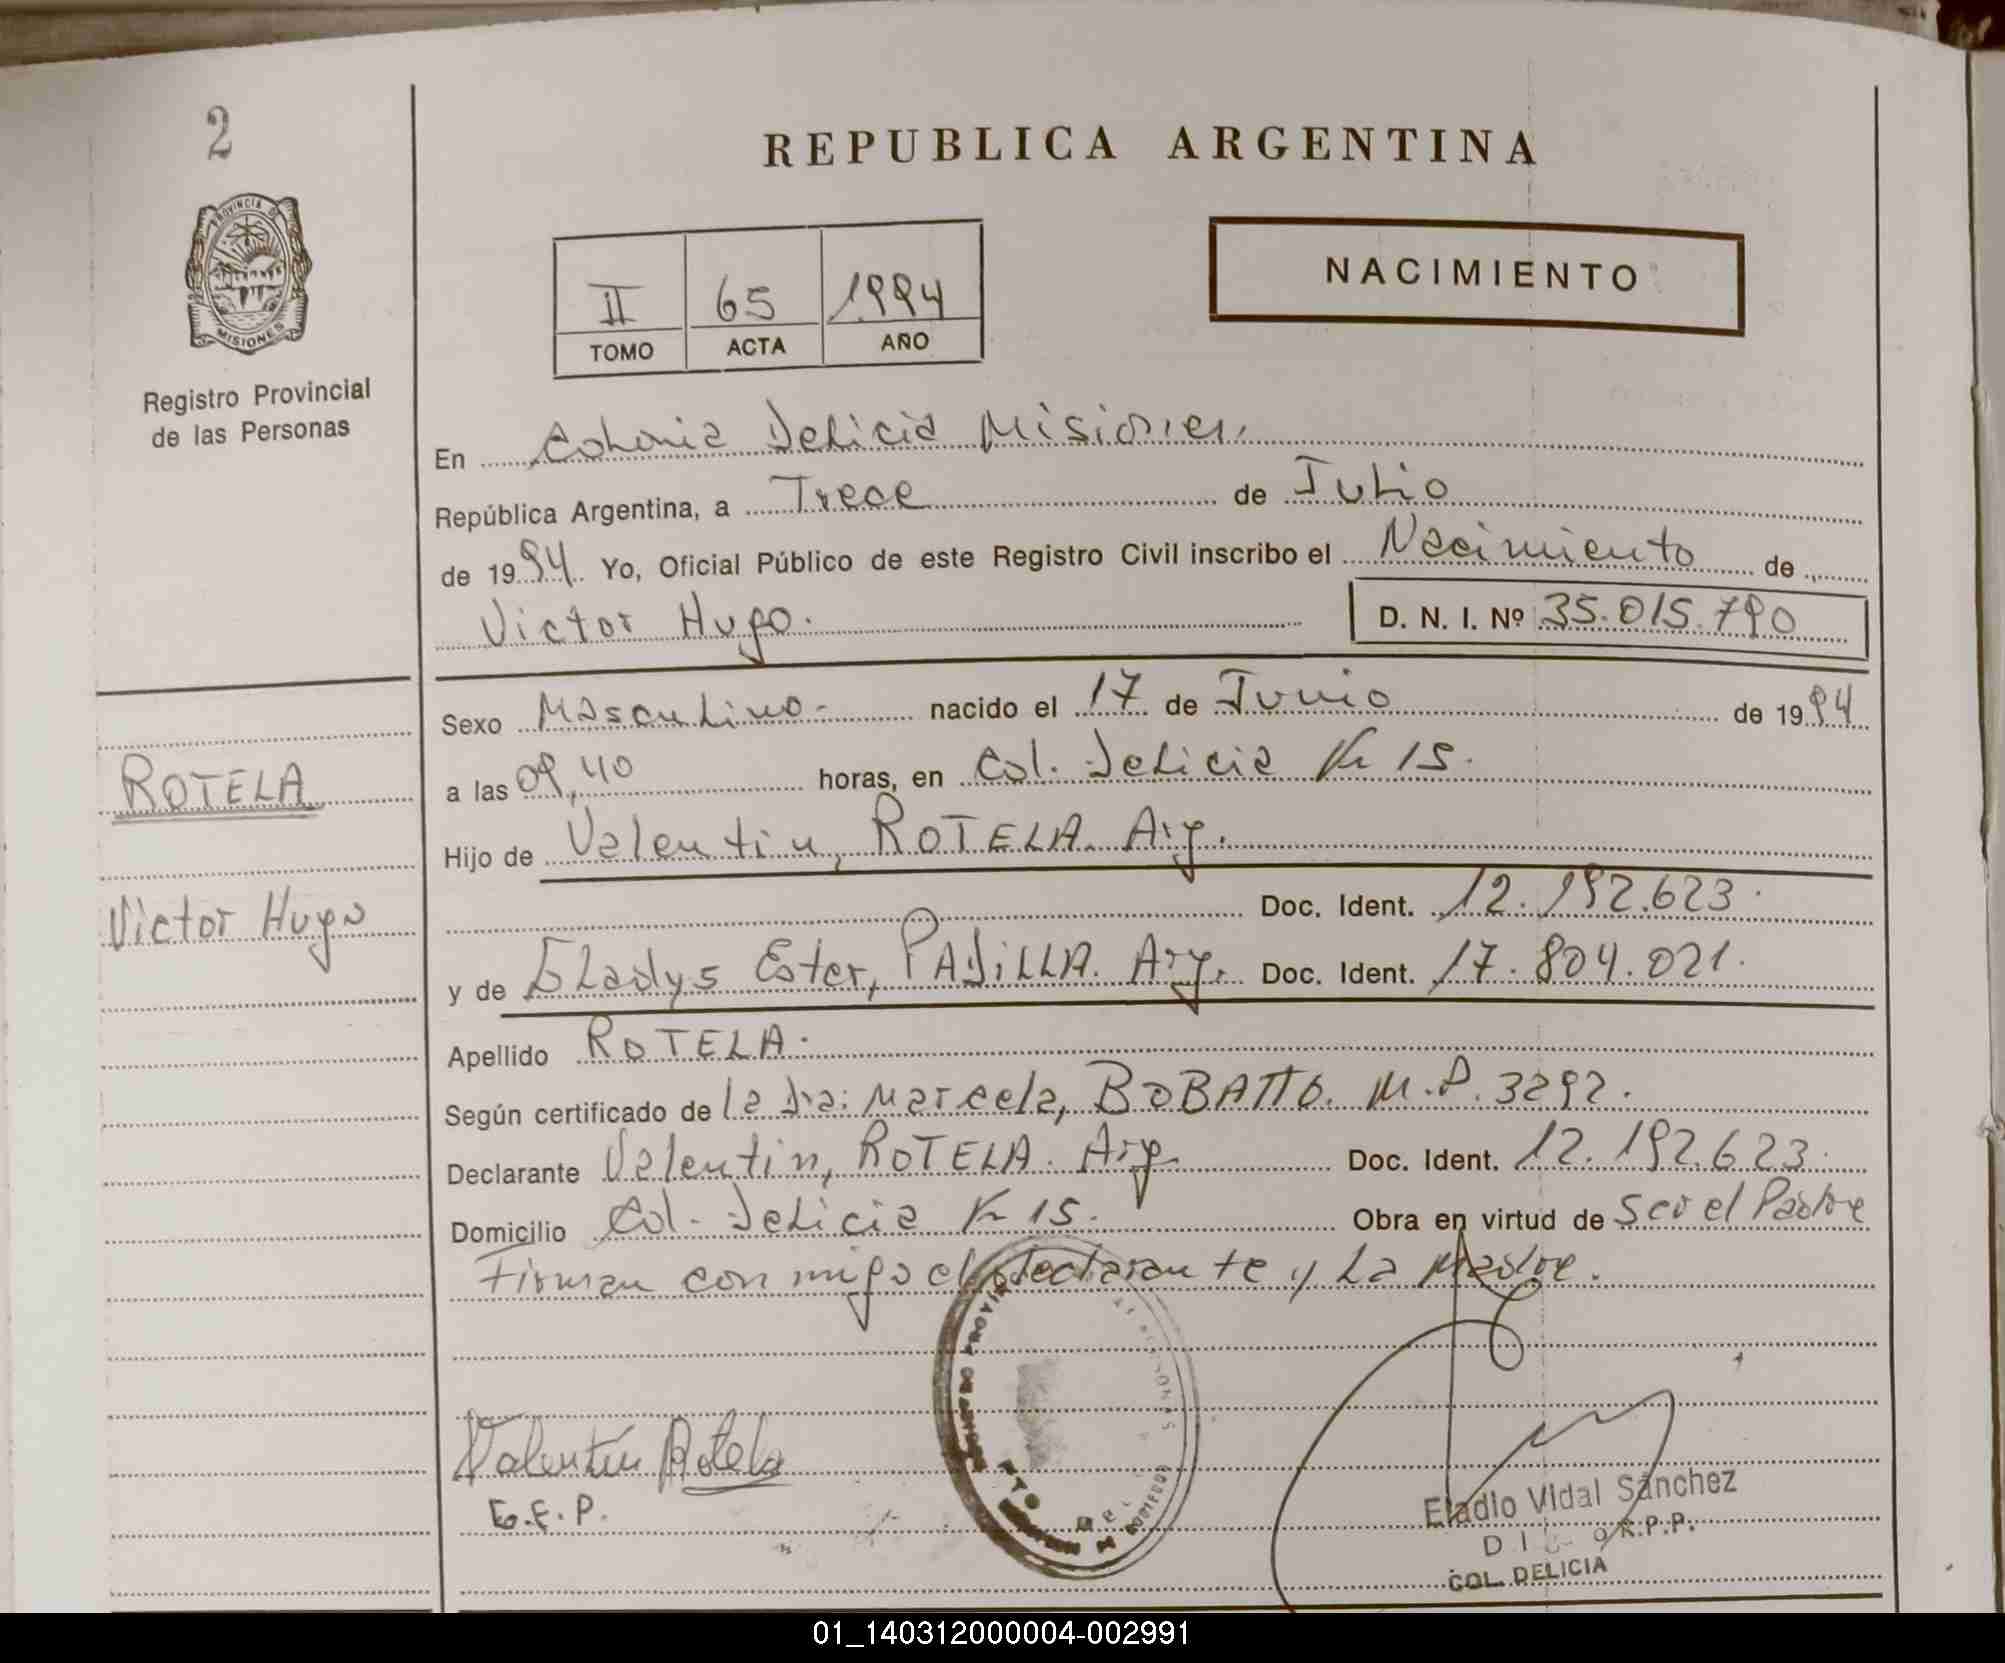 2
REPUBLICA ARGENTINA
PROVINCIA DE
MISIONES
Registro Provincial
de las Personas
II 65 1994
TOMO ACTA AÑO
NACIMIENTO
En Colonia Delicia Misiones,
República Argentina, a Trece de Julio
de 1994 Yo, Oficial Público de este Registro Civil inscribo el Nacimiento de
Victor Hugo. D. N. I. Nº 35.015.790
Sexo Masculino- nacido el 17 de Junio de 1994
a las 09,40 horas, en Col. Delicia Km 15.
Hijo de Valentin, ROTELA. Arg.
Doc. Ident. 12.192.623.
y de Gladys Ester, PADiLLA. Arg. Doc. Ident. 17.804.021.
Apellido ROTELA.
Según certificado de la Dra: Marcela, BOBATTO. M.P. 3292.
Declarante Valentin, ROTELA. Arg. Doc. Ident. 12.192.623.
Domicilio Col. Delicia Km 15. Obra en virtud de Ser el Padre
Firman con migo el declarante y La Madre.
ROTELA
Victor Hugo
Valentín Rotela
G.E.P.
Eladio Vidal Sánchez
R.P.P.
COL. DELICIA
01_140312000004-002991